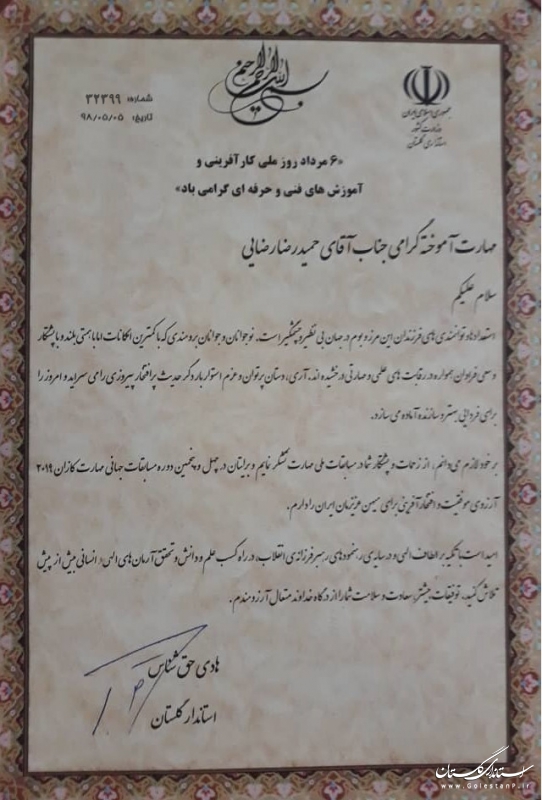 بسم الله الرحمن الرحیم
جمهوری اسلامی ایران
وزارت کشور
استانداری گلستان
شماره: ۳۲۳۹۹
تاریخ: ۹۸/۰۵/۰۵
«۶ مرداد روز ملی کارآفرینی و
آموزش های فنی و حرفه ای گرامی باد»
مهارت آموخته گرامی جناب آقای حمیدرضا رضایی
سلام علیکم
استعدادها و توانمندی های فرزندان این مرز و بوم در جهان بی نظیر و چشمگیر است. نوجوانان و جوانان برومندی که با کمترین امکانات اما با همتی بلند و با پشتکار
و سعی فراوان همواره در رقابت های علمی و مهارتی درخشیده اند. آری، دستان پرتوان و عزم استوار بار دگر حدیث پر افتخار پیروزی را می سراید و امروز را
برای فردایی بهتر و سازنده آماده می سازد.
بر خود لازم می دانم، از زحمات و پشتکار شما در مسابقات ملی مهارت تشکر نمایم و برایتان در چهل و پنجمین دوره مسابقات جهانی مهارت کازان ۲۰۱۹
آرزوی موفقیت و افتخار آفرینی برای میهن عزیزمان ایران را دارم.
امید است با تکیه بر الطاف الهی و در سایه ی رهنمودهای رهبر فرزانه ی انقلاب، در راه کسب علم و دانش و تحقق آرمان های الهی و انسانی بیش از پیش
تلاش کنید. توفیقات بیشتر، سعادت و سلامت شما را از درگاه خداوند متعال آرزومندم.
هادی حق شناس
استاندار گلستان
استانداری گلستان
www.GolestanP.ir